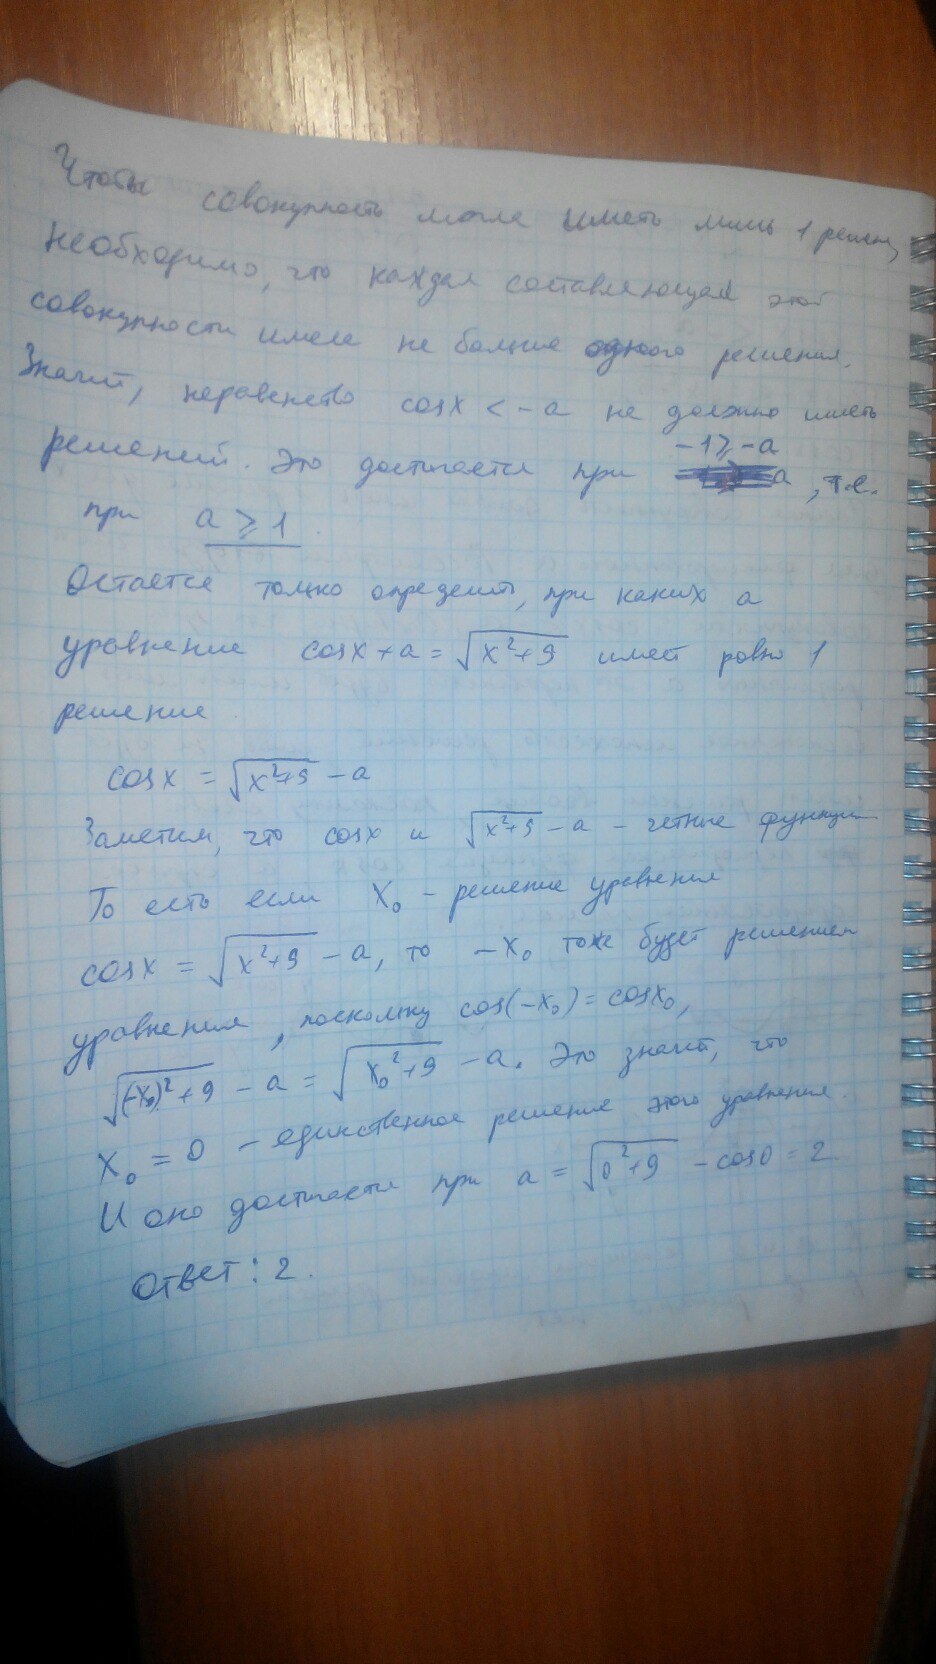 Чтобы совокупность могла иметь лишь 1 решен,
необходимо, что каждая составляющая этой
совокупности имела не больше одного решения.
Значит, неравенство cosx < -a не должно иметь
решений. Это достигается при -1 ⩾ -a, т.е.
при a ⩾ 1
Остается только определить, при каких a
уравнение cosx + a = √(x²+9) имеет ровно 1
решение
cosx = √(x²+9) - a
Заметим, что cosx и √(x²+9) - a - четные функции
То есть если x₀ - решение уравнения
cosx = √(x²+9) - a, то -x₀ тоже будет решением
уравнения, поскольку cos(-x₀) = cosx₀,
√((-x₀)²+9) - a = √(x₀²+9) - a. Это значит, что
x₀ = 0 - единственное решение этого уравнения.
И оно достигается при a = √(0²+9) - cos0 = 2.
Ответ: 2.